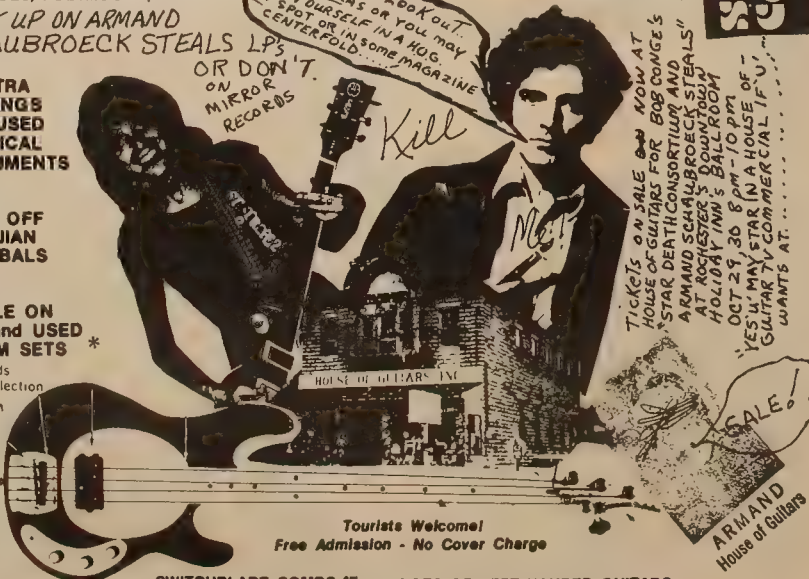 UP ON ARMAND
AUBROECK STEALS LP's
OR DON'T.
ON
MIRROR
RECORDS
LOOK OUT..
AS OR YOU MAY
YOURSELF IN A H.O.G.
SPOT OR IN SOME MAGAZINE
CENTERFOLD...
TRA
NGS
USED
ICAL
UMENTS
OFF
JIAN
BALS
LE ON
and USED
M SETS *
ds
lection
Kill
Me!
HOUSE OF GUITARS INC.
TICKETS ON SALE NOW AT
HOUSE OF GUITARS FOR BOB CONGE'S
"STAR DEATH CONSORTIUM AND
ARMAND SCHAUBROECK STEALS"
AT ROCHESTER'S DOWNTOWN
HOLIDAY INN'S BALLROOM
OCT 29 30 8 pm - 10 pm
"YES 'U' MAY STAR IN A HOUSE OF -
GUITAR TV COMMERCIAL IF 'U'
WANTS AT.........
SALE!
ARMAND
House of Guitars
Tourists Welcome!
Free Admission - No Cover Charge